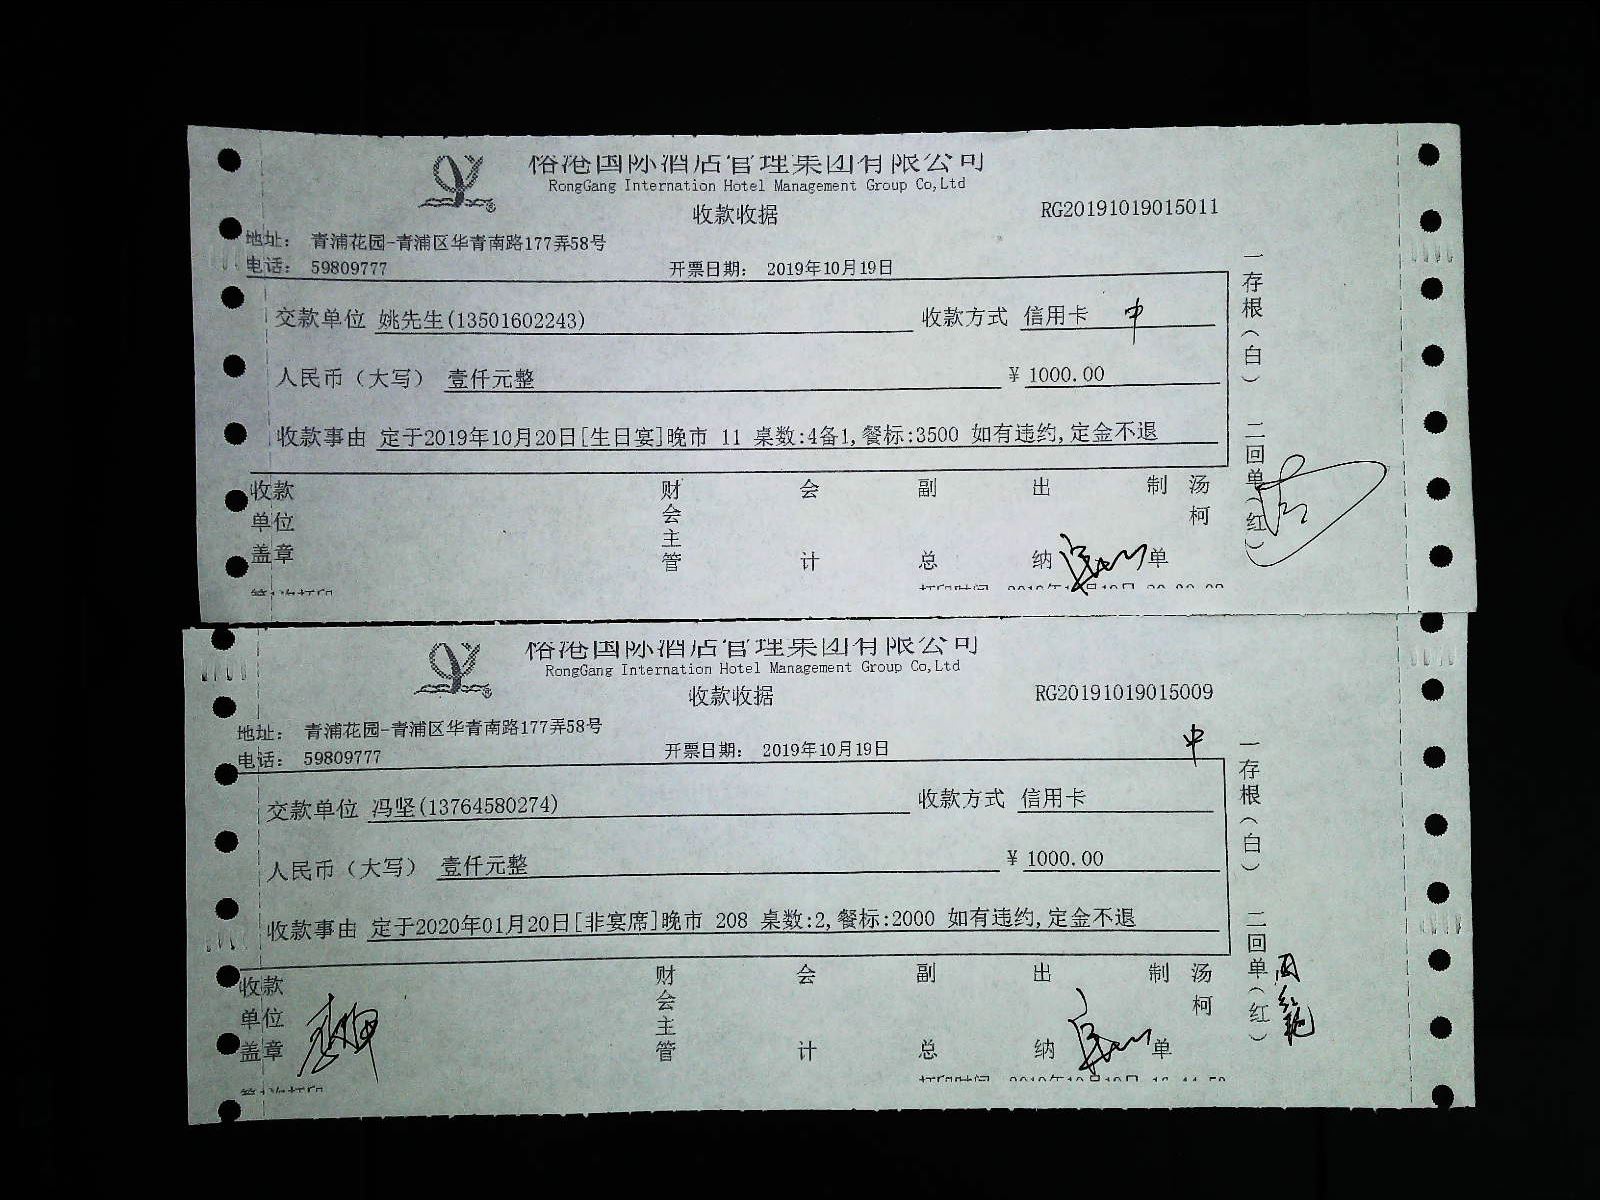 俗港国际酒店管理集团有限公司
RongGang Internation Hotel Management Group Co,Ltd
收款收据
RG20191019015011
地址: 青浦花园-青浦区华青南路177弄58号
电话: 59809777
开票日期: 2019年10月19日
交款单位 姚先生(13501602243)
收款方式 信用卡 中
人民币(大写) 壹仟元整
¥ 1000.00
收款事由 定于2019年10月20日[生日宴]晚市 11 桌数:4备1,餐标:3500 如有违约,定金不退
收款单位盖章
财会主管
会计
副总
出纳
制单
汤柯
一存根(白) 二回单(红)
第1次打印
打印时间
俗港国际酒店管理集团有限公司
RongGang Internation Hotel Management Group Co,Ltd
收款收据
RG20191019015009
地址: 青浦花园-青浦区华青南路177弄58号
电话: 59809777
开票日期: 2019年10月19日
中
交款单位 冯坚(13764580274)
收款方式 信用卡
人民币(大写) 壹仟元整
¥ 1000.00
收款事由 定于2020年01月20日[非宴席]晚市 208 桌数:2,餐标:2000 如有违约,定金不退
收款单位盖章
财会主管
会计
副总
出纳
制单
汤柯
一存根(白) 二回单(红)
第1次打印
打印时间